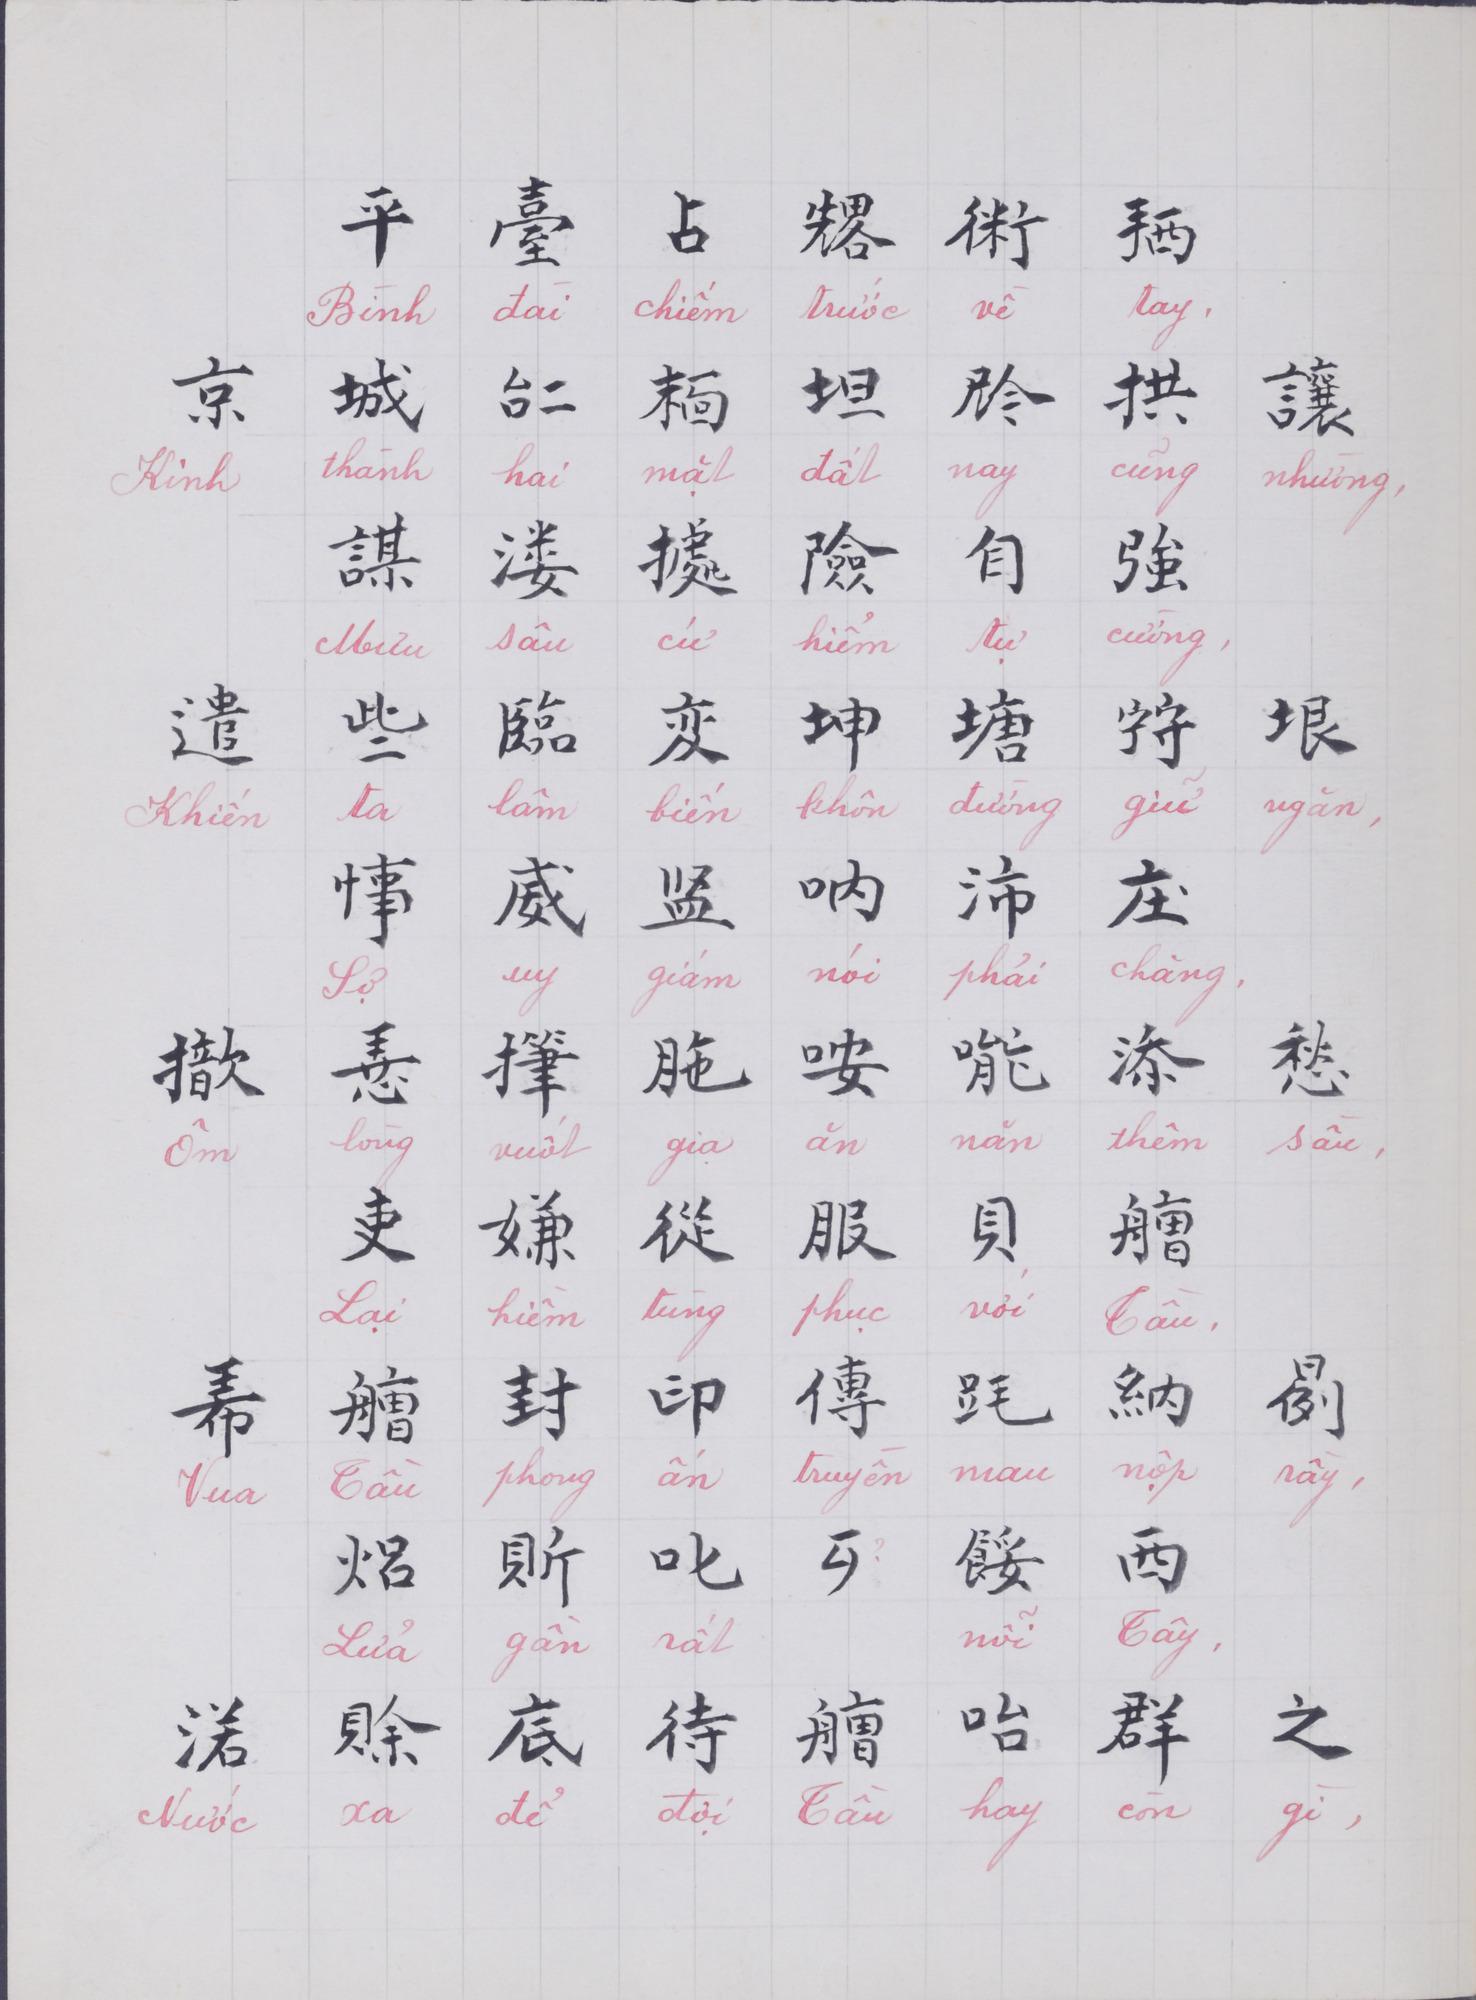 平 臺 占 𫏾 術 𢬣
Bình đài chiếm trước về tay,
京 城 𠄩 𩈘 坦 𫢩 拱 讓
Kinh thành hai mặt đất nay cũng nhường,
謀 溇 據 險 自 強
Mưu sâu cứ hiểm tự cường,
遣 些 臨 変 坤 塘 𡨹 垠
Khiến ta lâm biến khôn đường giữ ngăn,
𢜝 威 监 呐 沛 庄
Sợ uy giám nói phải chăng,
𢜠 𢬗 𦘹 咹 𠹌 添 愁
Ôm lòng vuốt gia ăn năn thêm sầu,
吏 嫌 從 服 貝 艚
Lại hiềm tùng phục với Tầu,
𢂜 艚 封 印 傳 𨒒 納 𣈙
Vua Tầu phong ấn truyền mau nộp rầy,
焒 𧵆 叱 餒 西
Lửa gần rất nỗi Tây,
渃 賒 底 待 艚 咍 群 之
Nước xa để đợi Tầu hay còn gì,